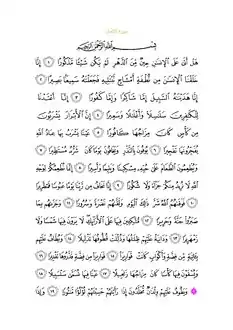 سورة الإنسان
بسم الله الرحمن الرحيم
هَلْ أَتَىٰ عَلَى الْإِنسَٰنِ حِينٌ مِّنَ الدَّهْرِ لَمْ يَكُن شَيْئًا مَّذْكُورًا ۝١ إِنَّا
خَلَقْنَا الْإِنسَٰنَ مِن نُّطْفَةٍ أَمْشَاجٍ نَّبْتَلِيهِ فَجَعَلْنَٰهُ سَمِيعًا بَصِيرًا ۝٢
إِنَّا هَدَيْنَٰهُ السَّبِيلَ إِمَّا شَاكِرًا وَإِمَّا كَفُورًا ۝٣ إِنَّا أَعْتَدْنَا
لِلْكَٰفِرِينَ سَلَٰسِلَا وَأَغْلَٰلًا وَسَعِيرًا ۝٤ إِنَّ الْأَبْرَارَ يَشْرَبُونَ
مِن كَأْسٍ كَانَ مِزَاجُهَا كَافُورًا ۝٥ عَيْنًا يَشْرَبُ بِهَا عِبَادُ اللَّهِ
يُفَجِّرُونَهَا تَفْجِيرًا ۝٦ يُوفُونَ بِالنَّذْرِ وَيَخَافُونَ يَوْمًا كَانَ شَرُّهُ مُسْتَطِيرًا ۝٧
وَيُطْعِمُونَ الطَّعَامَ عَلَىٰ حُبِّهِ مِسْكِينًا وَيَتِيمًا وَأَسِيرًا ۝٨ إِنَّمَا نُطْعِمُكُمْ لِوَجْهِ
اللَّهِ لَا نُرِيدُ مِنكُمْ جَزَاءً وَلَا شُكُورًا ۝٩ إِنَّا نَخَافُ مِن رَّبِّنَا يَوْمًا عَبُوسًا قَمْطَرِيرًا
۝١٠ فَوَقَىٰهُمُ اللَّهُ شَرَّ ذَٰلِكَ الْيَوْمِ وَلَقَّىٰهُمْ نَضْرَةً وَسُرُورًا ۝١١ وَجَزَىٰهُم بِمَا
صَبَرُوا جَنَّةً وَحَرِيرًا ۝١٢ مُّتَّكِئِينَ فِيهَا عَلَى الْأَرَائِكِ لَا يَرَوْنَ فِيهَا شَمْسًا وَلَا
زَمْهَرِيرًا ۝١٣ وَدَانِيَةً عَلَيْهِمْ ظِلَٰلُهَا وَذُلِّلَتْ قُطُوفُهَا تَذْلِيلًا ۝١٤ وَيُطَافُ عَلَيْهِم
بِـَٔانِيَةٍ مِّن فِضَّةٍ وَأَكْوَابٍ كَانَتْ قَوَارِيرَا ۝١٥ قَوَارِيرَا مِن فِضَّةٍ قَدَّرُوهَا تَقْدِيرًا ۝١٦
وَيُسْقَوْنَ فِيهَا كَأْسًا كَانَ مِزَاجُهَا زَنجَبِيلًا ۝١٧ عَيْنًا فِيهَا تُسَمَّىٰ سَلْسَبِيلًا ۝١٨
وَيَطُوفُ عَلَيْهِمْ وِلْدَٰنٌ مُّخَلَّدُونَ إِذَا رَأَيْتَهُمْ حَسِبْتَهُمْ لُؤْلُؤًا مَّنثُورًا ۝١٩ وَإِذَا